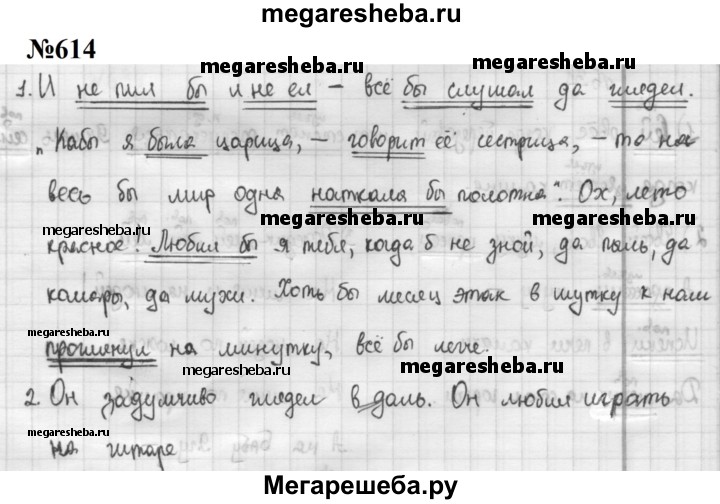 megaresheba.ru
№614
megaresheba.ru megaresheba.ru
1. И не пил бы и не ел – всё бы слушал да глядел.
megaresheba.ru megaresheba.ru
„Кабы я была царица, – говорит её сестрица, – то на
весь бы мир одна наткала бы полотна". Ох, лето
megaresheba.ru megaresheba.ru
красное! Любил бы я тебя, когда б не зной, да пыль, да
комары, да мухи. Хоть бы месяц этак в шутку к нам
megaresheba.ru
проглянул на минутку, всё бы легче.
megaresheba.ru megaresheba.ru
2. Он задумчиво глядел вдаль. Он любил играть
megaresheba.ru megaresheba.ru
на гитаре
Мегарешеба.ру